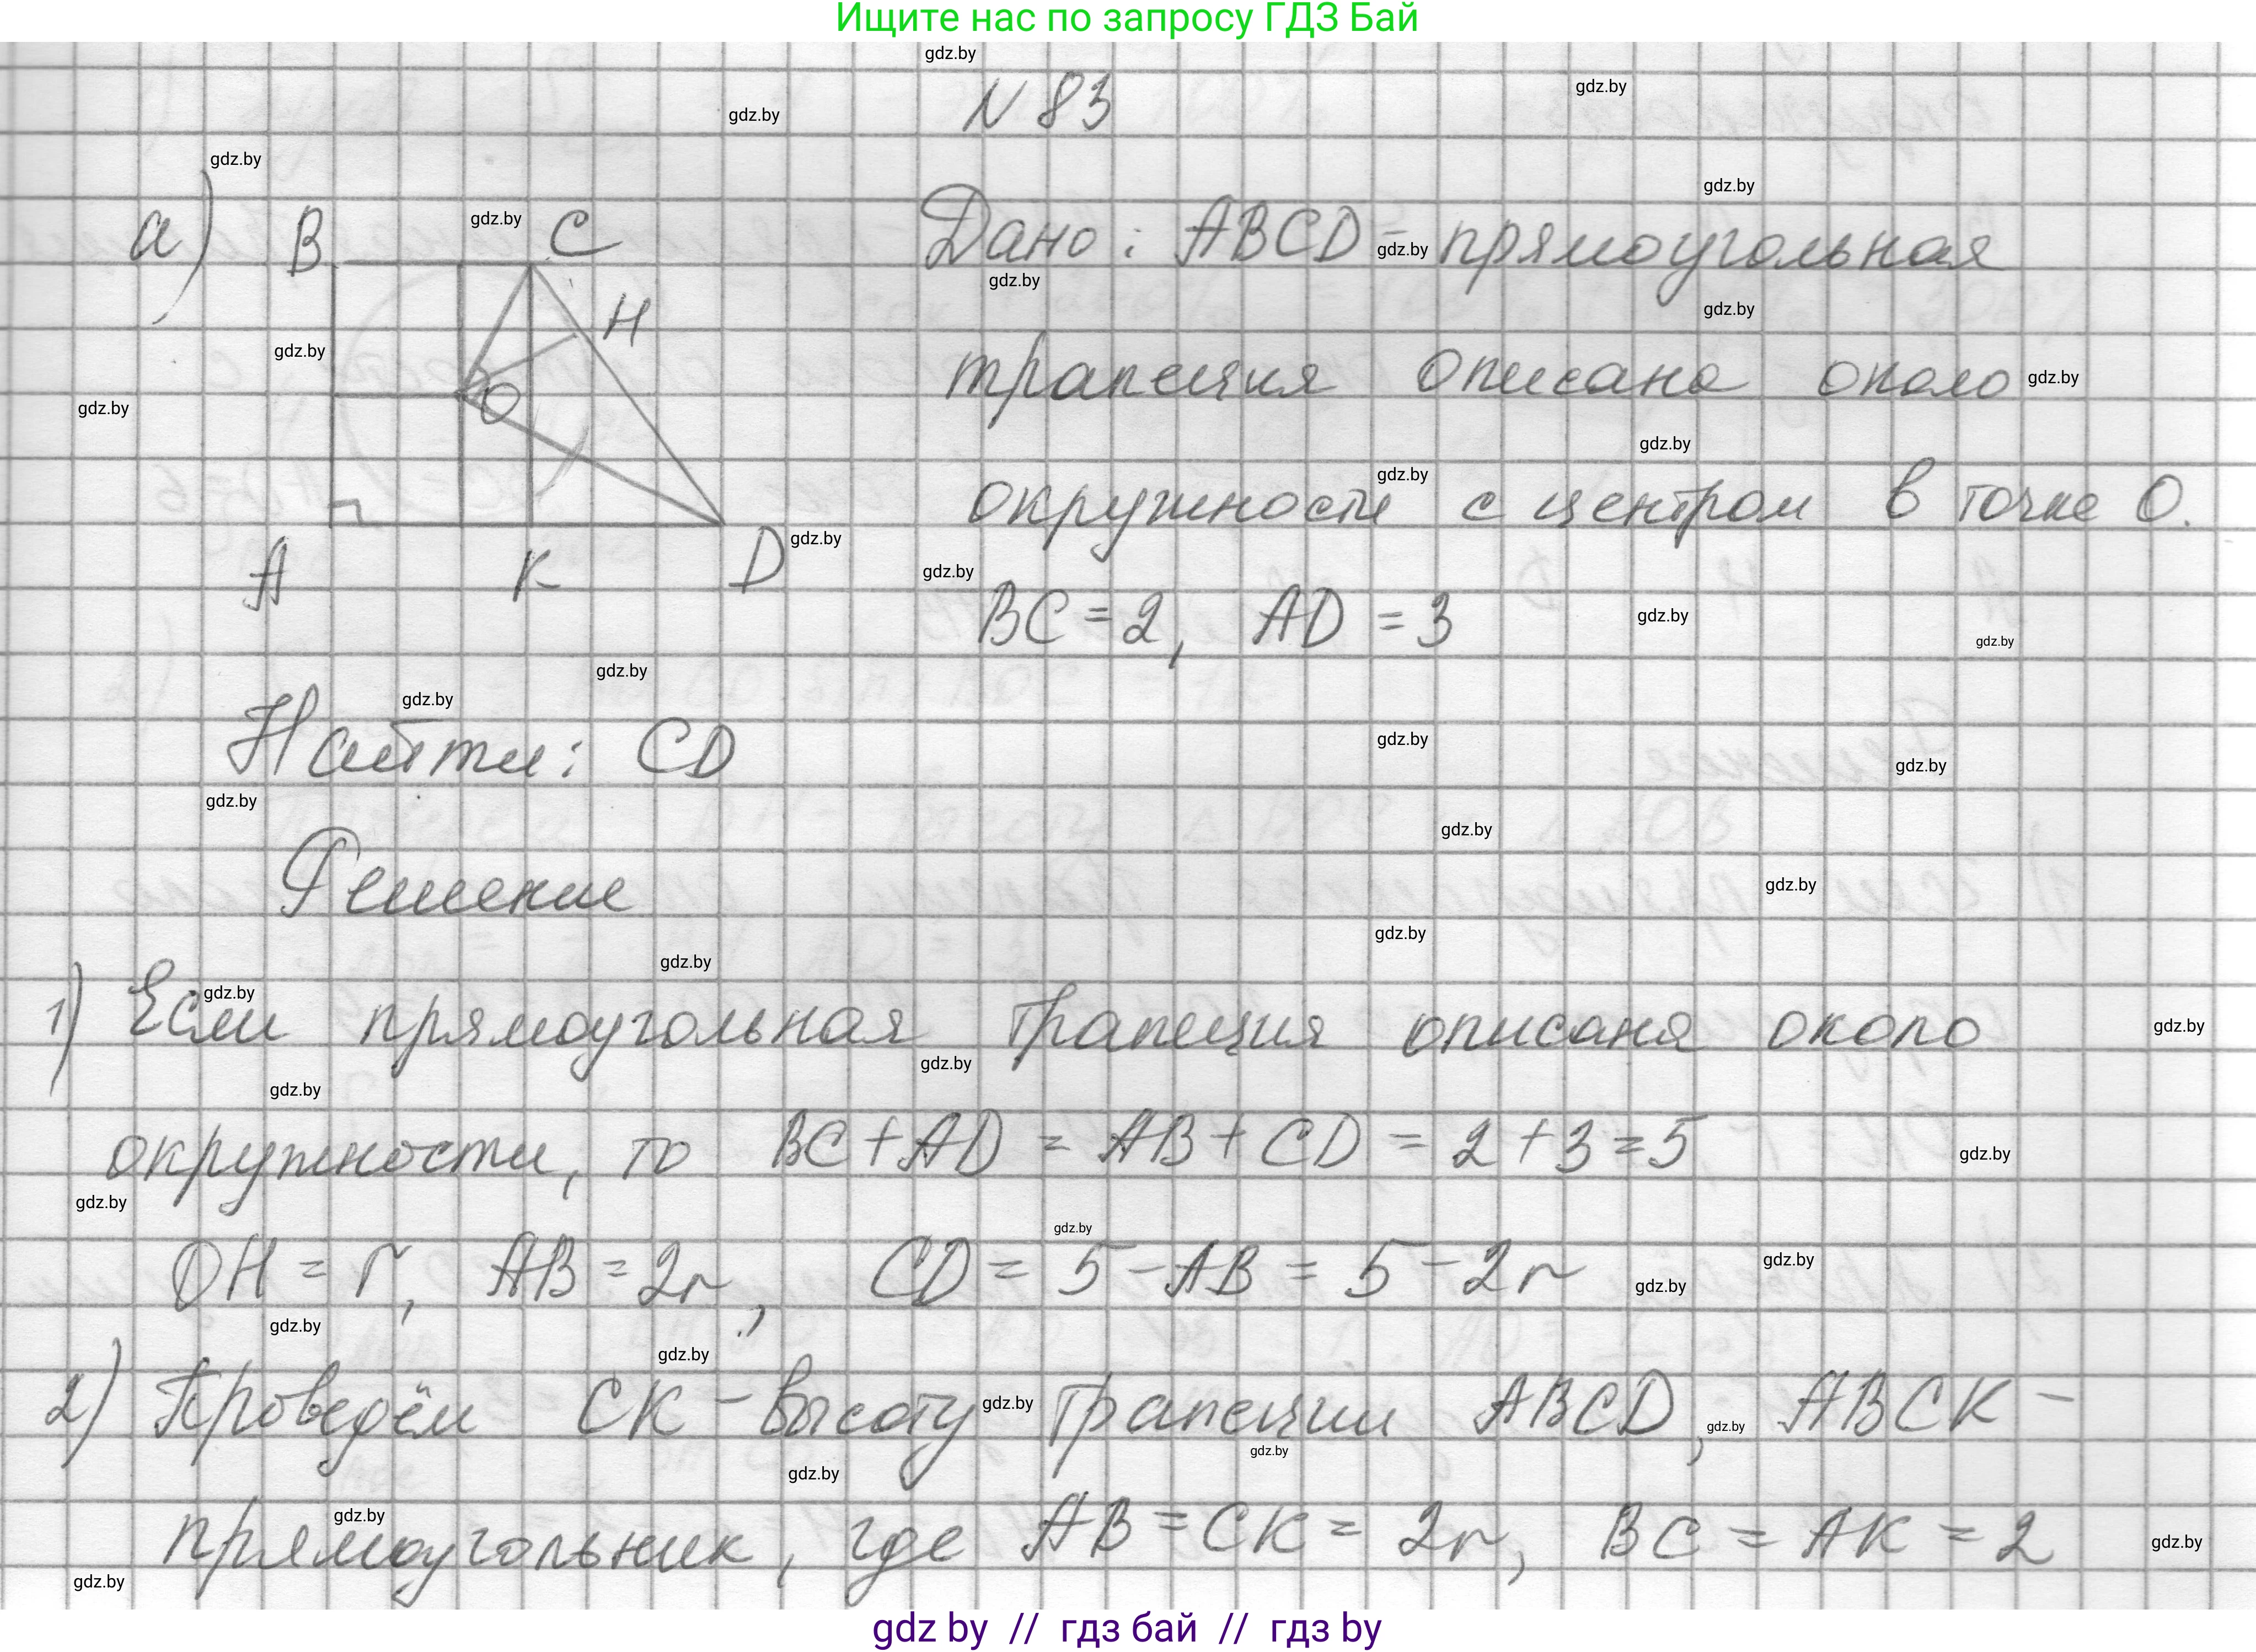 Ищите нас по запросу ГДЗ Бай
N 83
а) B C H O A K D
Дано: ABCD - прямоугольная
трапеция описана около
окружности с центром в точке O.
BC = 2, AD = 3
Найти: CD
Решение
1) Если прямоугольная трапеция описаня около
окружности, то BC + AD = AB + CD = 2 + 3 = 5
OH = r, AB = 2r, CD = 5 - AB = 5 - 2r
2) Проведём CK - высоту трапеции ABCD, ABCK -
прямоугольник, где AB = CK = 2r, BC = AK = 2
gdz by // гдз бай // гдз by
gdz.by